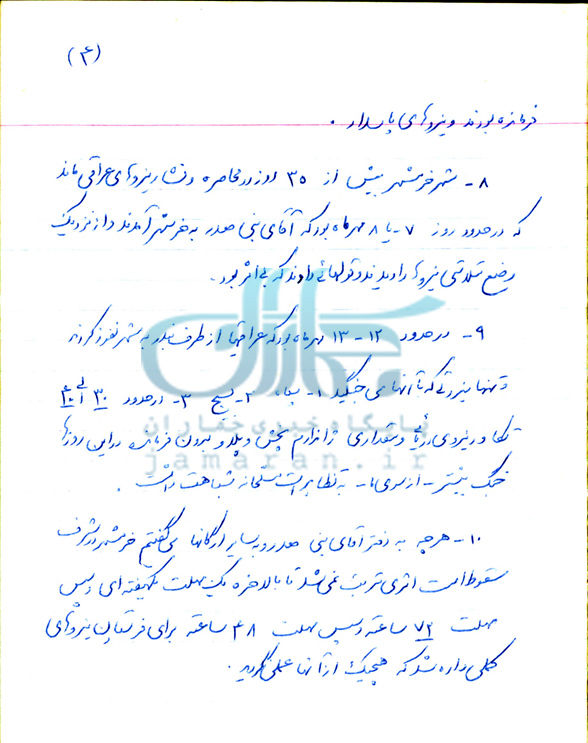 (۴)
فرمانده بودند و نیروهای پاسدار .
۸- شهر خرمشهر بیش از ۳۵ روز در محاصره و فشار نیروهای عراقی ماند
که در حدود روز ۷- یا ۸ مهرماه بود که آقای بنی صدر به خرمشهر آمدند و از نزدیک
وضع نیروها را دیدند و قولهائی دادند که بی اثر بود .
۹- در حدود ۱۲ - ۱۳ مهرماه بود که عراقیها از طرف بندر به شهر نفوذ کردند
و تنها نیروئی که با آنها می جنگید ۱- سپاه ۲- بسیج ۳- در حدود ۳۰ الی ۴۰
تکاور نیروی دریائی و مقداری ژاندارم پخش و پلا و بدون فرمانده در این روزها
جنگ بیشتر - از سوی ما - به تظاهرات مسلحانه شباهت داشت .
۱۰- هرچه به دفتر آقای بنی صدر و سایر ارگانها می گفتیم خرمشهر در شرف
سقوط است اثری مترتب نمی شد تا بالاخره یک مهلت یکهفته ای و سپس
مهلت ۷۲ ساعته و سپس مهلت ۴۸ ساعته برای فرستادن نیروهای
کمکی داده شد که هیچیک از آنها عملی نگردید .
جماران
پایگاه خبری جماران
jamaran.ir